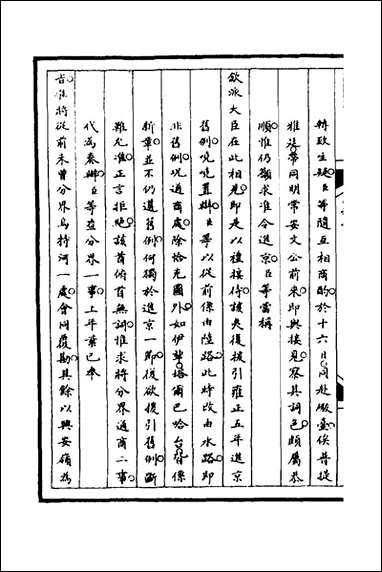 轉致生疑臣等隨互相商酌於十六日同赴廠臺俟普提
雅廷帶同明常安文公前來即與接見察其詞色頗屬恭
順惟仍懇求准令進京臣等當稱
欽派大臣在此相見即是以禮接待該夷復援引雍正五年進京
舊例嘵嘵置辯臣等以從前係由陸路此時改由水路即
非舊例況通商處除恰克圖外如伊犂塔爾巴哈台皆係
新章並不仍遵舊例何獨於進京一節復欲援引舊例斷
難允准正言拒絕該酋俯首無詞惟求將分界通商二事
代為奏辦臣等查分界一事上年業已奉
旨准將從前未曾分界烏特河一處會同履勘其餘以興安嶺為